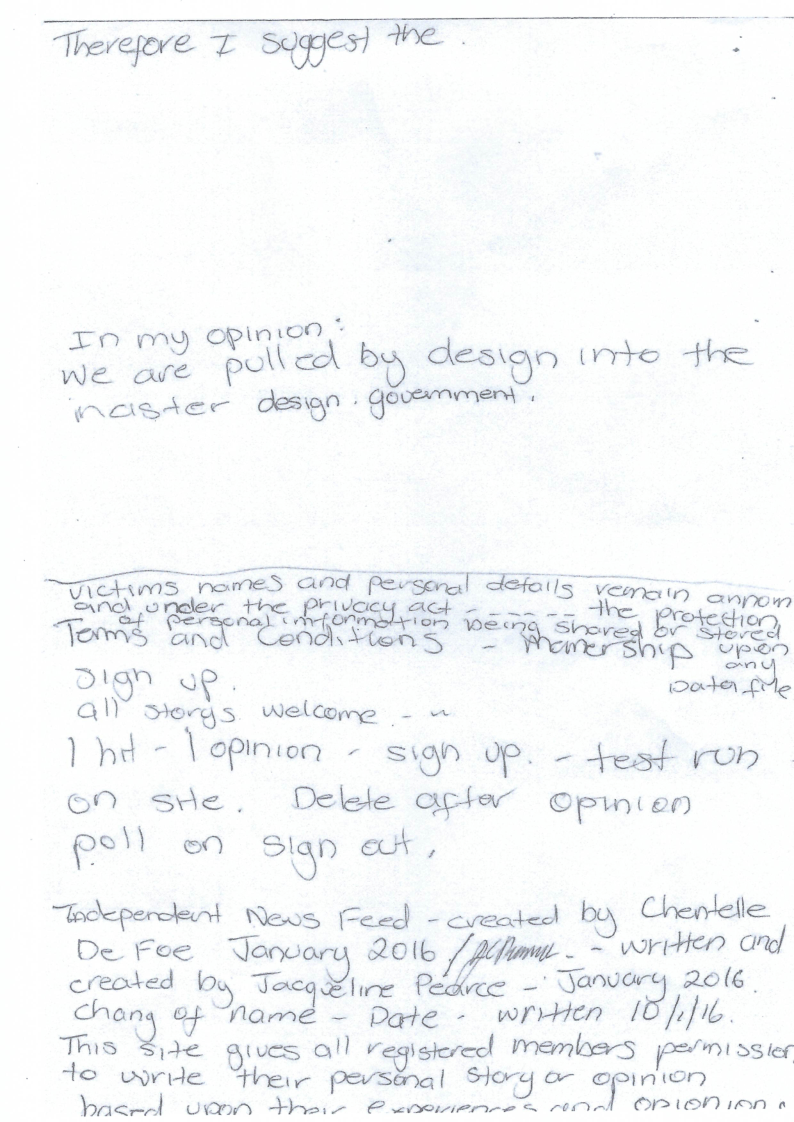 Therefore I suggest the .
In my opinion :
We are pulled by design into the
master design . government .
victims names and personal details remain annom
and under the privacy act - - - - - - - the protection
of personal imformation being shared or stored
Terms and Conditions - Mamership upon
any
Data file
Sign up.
all storys welcome - ~
1 hit - 1 opinion - sign up. - test run
on site. Delete after opinion
poll on sign out .
Independent News Feed - created by Chentelle
De Foe January 2016 / - written and
created by Jacqueline Pearce - January 2016.
Chang of name - Date - written 10/1/16.
This site gives all registered members permission
to write their personal story or opinion
based upon their experiences and opionion.